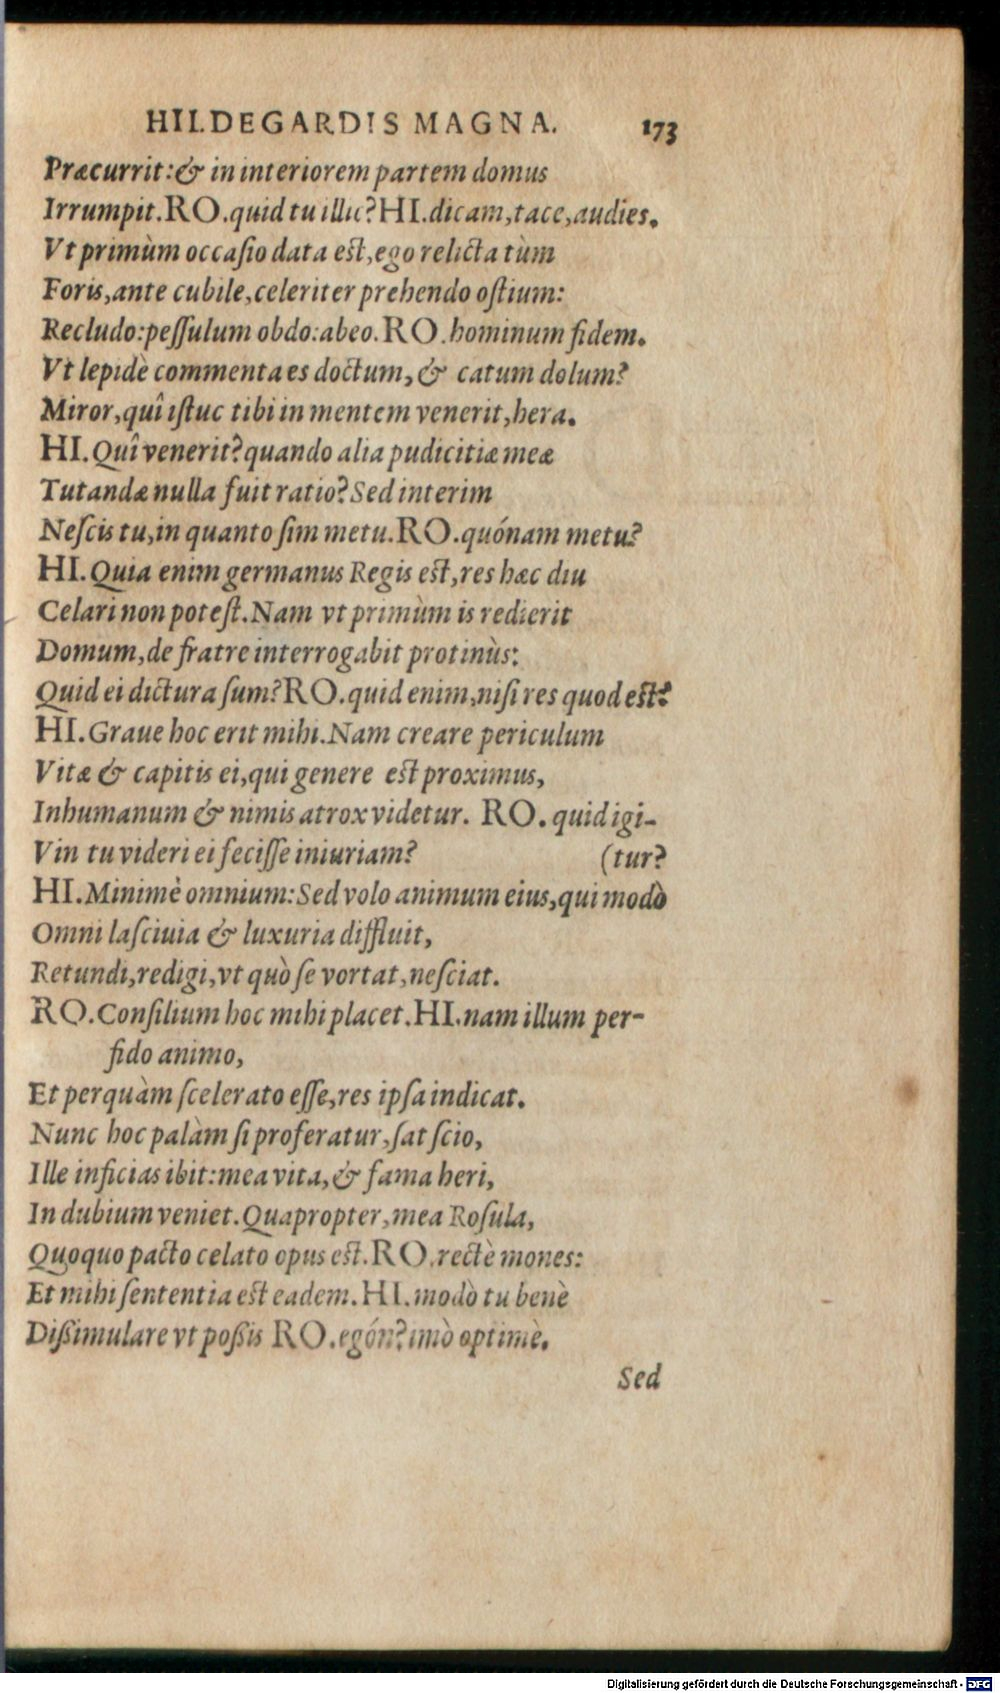 HILDEGARDIS MAGNA. 173
Præcurrit:& in interiorem partem domus
Irrumpit.RO.quid tu illic?HI.dicam,tace,audies.
Vt primùm occaſio data est,ego relicta tùm
Foris,ante cubile,celeriter prehendo oſtium:
Recludo:peſſulum obdo:abeo.RO.hominum fidem.
Vt lepidè commenta es doctum,& catum dolum?
Miror,quî iſtuc tibi in mentem venerit,hera.
HI.Quî venerit?quando alia pudicitiæ meæ
Tutandæ nulla fuit ratio?Sed interim
Neſcis tu,in quanto ſim metu.RO.quónam metu?
HI.Quia enim germanus Regis est,res hæc diu
Celari non poteſt.Nam vt primùm is redierit
Domum,de fratre interrogabit protinùs:
Quid ei dictura ſum?RO.quid enim,niſi res quod est?
HI.Graue hoc erit mihi.Nam creare periculum
Vitæ & capitis ei,qui genere est proximus,
Inhumanum & nimis atrox videtur. RO. quid igi-
Vin tu videri ei feciſſe iniuriam? (tur?
HI.Minimè omnium:Sed volo animum eius,qui modò
Omni laſciuia & luxuria diffluit,
Retundi,redigi,vt quò ſe vortat,neſciat.
RO.Conſilium hoc mihi placet.HI.nam illum per-
fido animo,
Et perquàm ſcelerato eſſe,res ipſa indicat.
Nunc hoc palàm ſi proferatur,ſat ſcio,
Ille inficias ibit:mea vita,& fama heri,
In dubium veniet.Quapropter,mea Roſula,
Quoquo pacto celato opus est.RO.rectè mones:
Et mihi ſententia est eadem.HI.modò tu benè
Dißimulare vt poßis RO.egón?imò optimè.
Sed
Digitalisierung gefördert durch die Deutsche Forschungsgemeinschaft - DFG